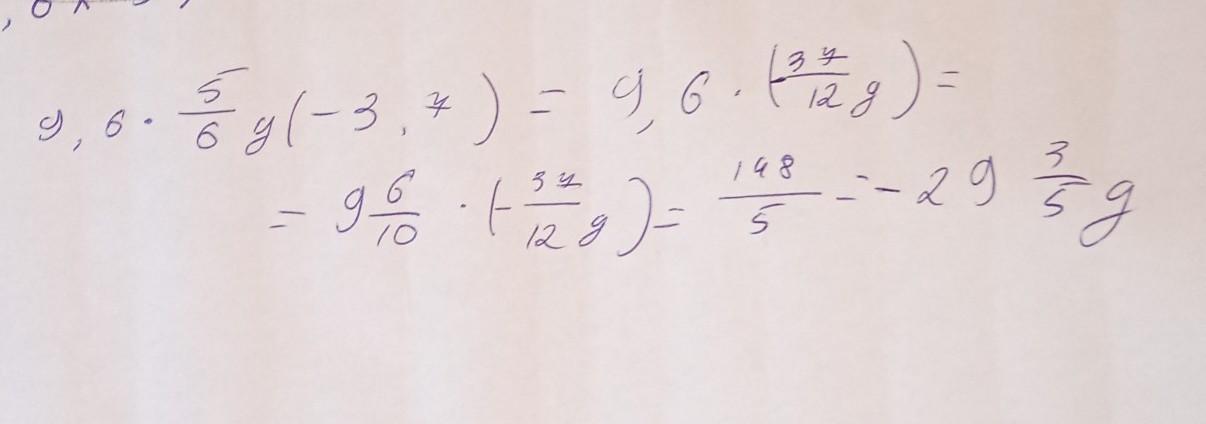 9,6 · 5/6 y(-3,7) = 9,6 · (-37/12 y) =
= 9 6/10 · (-37/12 y) = 148/5 = -29 3/5 y